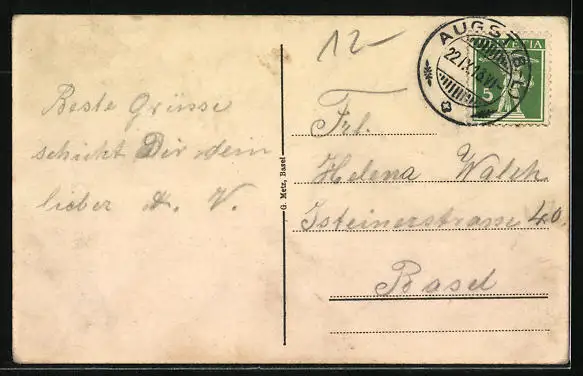 12-
AUGST
22.IX.16
HELVETIA
5
Beste Grüsse
schickt Dir dein
lieber A. V.
G. Metz, Basel
Frl.
Helena Walch
Isteinerstrasse 40
Basel